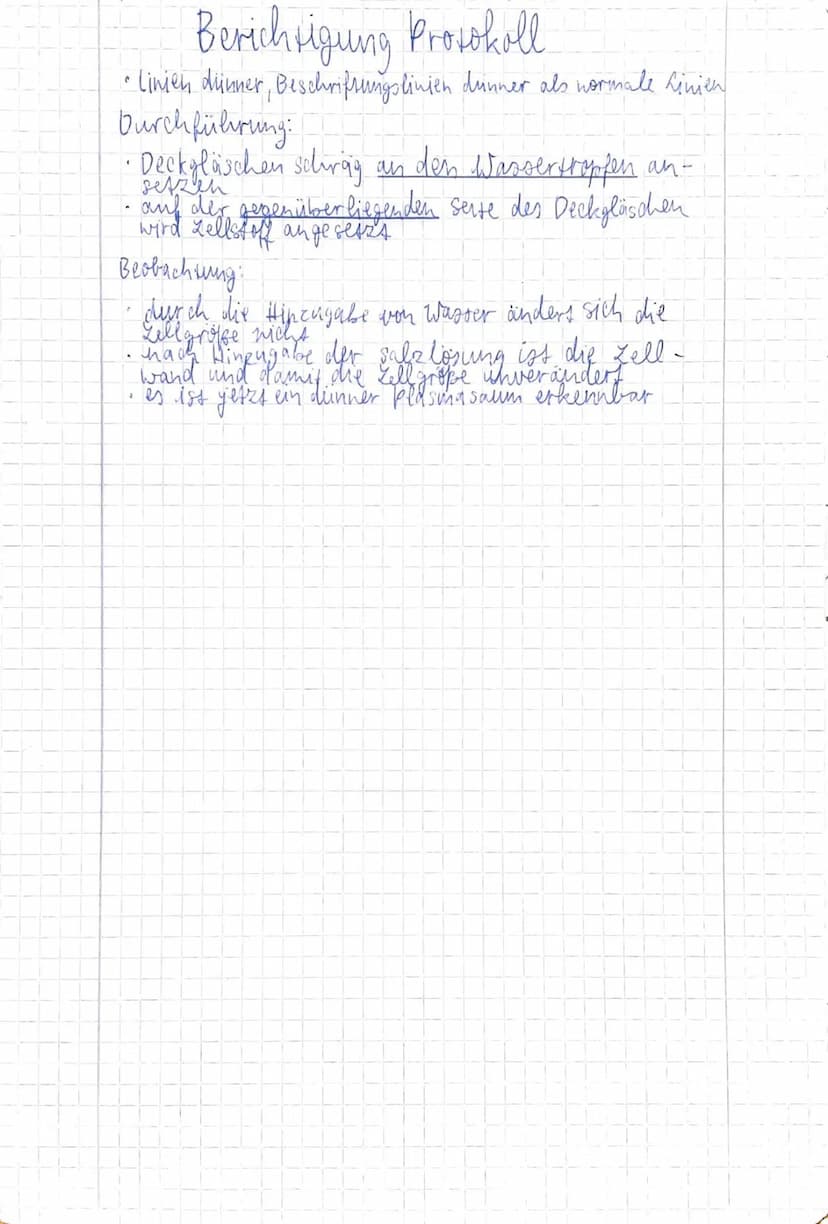 Berichtigung Protokoll
• Linien dünner, Beschriftungslinien dünner als normale Linien
Durchführung:
• Deckgläschen schräg an den Wassertropfen an-
setzen
• auf der gegenüberliegenden Seite des Deckgläschen
wird Zellstoff angesetzt
Beobachtung:
• durch die Hinzugabe von Wasser ändert sich die
Zellgröße nicht
• nach Hinzugabe der Salzlösung ist die Zell-
wand und damit die Zellgröße unverändert
• es ist jetzt ein dünner Plasmasaum erkennbar